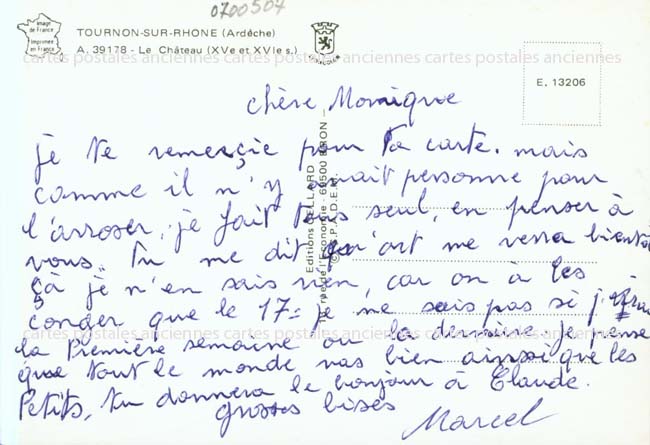 0700504
Image
de France
Imprimée
en France
TOURNON-SUR-RHONE (Ardèche)
A. 39178 - Le Château (XVe et XVIe s.)
E. 13206
cartes postales anciennes cartes postales anciennes cartes postales anciennes
chère Monique
je te remerçie pour ta carte. mais
comme il n'y avait personne pour
l'arroser, je fait tous seul, en penser à
vous. Tu me dit qu'ont me verra bientôt
çà je n'en sais rien, car on à les
conger que le 17 = je me sais pas si j'irai
la Première semaine ou la dernière. je pense
que tout le monde vas bien ainsi que les
Petits, tu donnera le bonjour à Claude.
grosses bises
Marcel
Editions BELLARD
rue de l'Economie - 69500 BRON
cartes postales anciennes cartes postales anciennes cartes postales anciennes